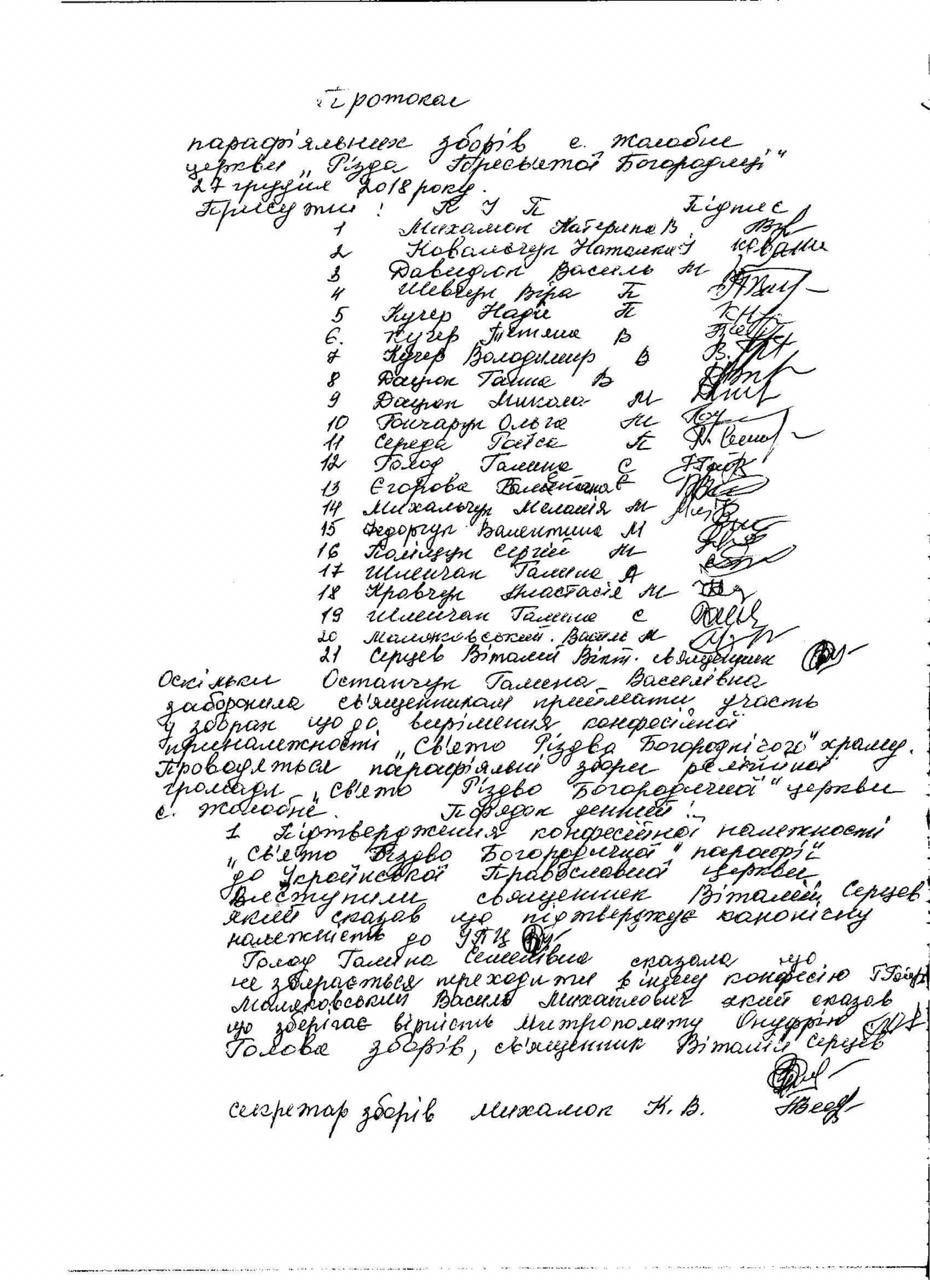 Протокол
парафіяльних зборів с. Жолобне
церкви „Різдва Пресвятої Богородиці"
27 грудня 2018 року.
Присутні: П І П Підпис
1 Михамюк Катерина В.
2 Ковальчук Наталія І
3 Давидюк Василь М
4 Шевчук Віра П
5 Кучер Надія П
6. Кучер Тетяна В
7 Кучер Володимир В
8 Дацюк Ганна В
9 Дацюк Микола М
10 Гончарук Ольга М
11 Середа Раїса П
12 Голод Галина С
13 Єгорова
14 Михальчук Меланія М
15 Федорчук Валентина М
16 Поліщук Сергій М
17 Шлейчак Галина А
18 Кравчук Анастасія М
19 Шлейчак Галина С
20 Маляковський. Василь М
21 Серцев Віталій Вікт. священник
Оскільки Остапчук Галина Василівна
заборонила св'ященникам приймати участь
у зборах що до вирішення конфесійної
приналежності „Св'ято Різдва Богороднічого" храму.
Проводяться парафіяльні збори релігійної
громади „Св'ято Різдво Богородичної" церкви
с. Жолобне. Порядок денний:
1. Підтвердження конфесійної належності
„Св'ято Різдво Богородичної" парафії
до Української Православної церкви
Виступили священник Віталій Серцев
який сказав що підтверджує канонічну
належність до УПЦ
Голод Галина Семенівна сказала що
не збирається переходити в іншу конфесію
Маляковський Василь Михайлович який сказав
що зберігає вірність Митрополиту Онуфрію
Голова зборів, св'ященник Віталій Серцев
секретар зборів Михамюк К. В.